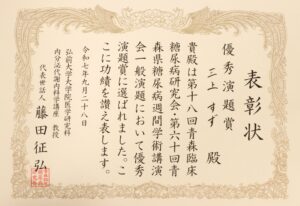 表彰状
優秀演題賞
三上 すず 殿
貴殿は第十八回青森臨床
糖尿病研究会・第六十回青
森県糖尿病週間学術講演
会一般演題において優秀
演題賞に選ばれました。こ
こに功績を讃え表します。
令和七年九月二十八日
弘前大学大学院医学研究科
内分泌代謝内科学講座 教授
代表世話人 藤田征弘